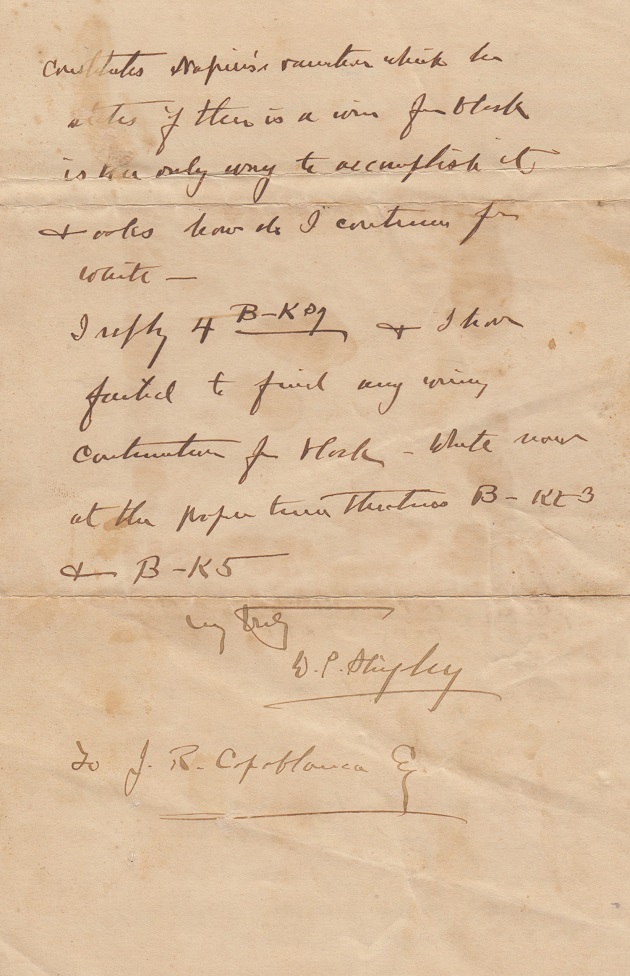 constitutes Napier's variation which he
states if there is a win for black
is the only way to accomplish it
& asks how do I continue for
white —
I reply 4 B-Kt1 & I have
failed to find any winning
continuation for black – White now
at the proper time threatens B-Kt3
& B-K5
very truly
W. P. Shipley
To J. R. Capablanca Esq